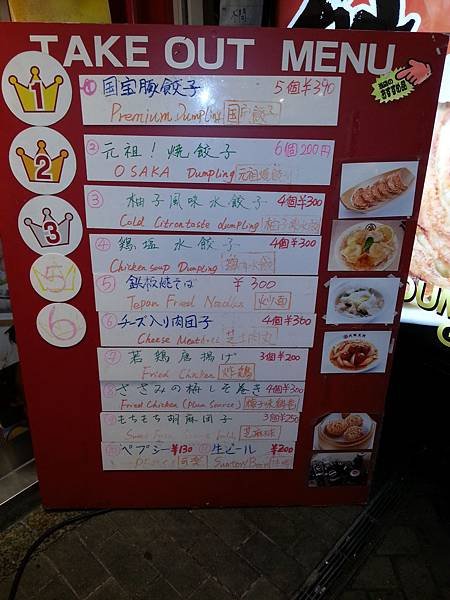 TAKE OUT MENU
1
① 国宝豚餃子 5個¥390
Premium Dumpling
2
② 元祖！焼餃子 6個200円
OSAKA Dumpling 元祖焼餃
3
③ 柚子風味水餃子 4個¥300
Cold Citron taste dumpling
④ 鶏塩水餃子 4個¥300
Chicken soup Dumpling
5
⑤ 鉄板焼そば ¥300
Tepan Fried Noodles 炒面
6
⑥ チーズ入り肉団子 4個¥360
Cheese Meatball 芝士肉丸
⑦ 若鶏唐揚げ 3個¥200
Fried Chicken 炸鶏
ささみの梅しそ巻き 4個¥300
Fried Chicken (Plum Source)
もちもち胡麻団子 3個¥250
芝麻球
ペプシー ¥130 生ビール ¥200
可樂 Suntory Beer